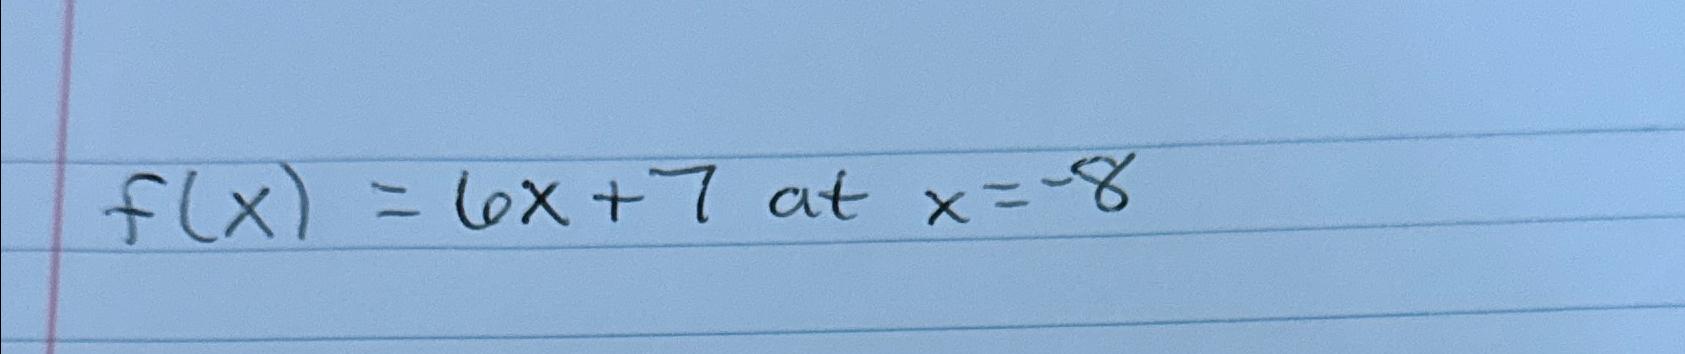 f(x) = 6x + 7 at x = -8